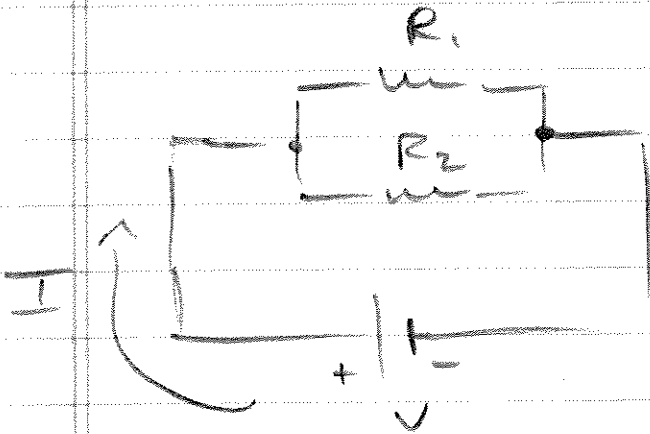 R₁
R₂
I
+ -
V